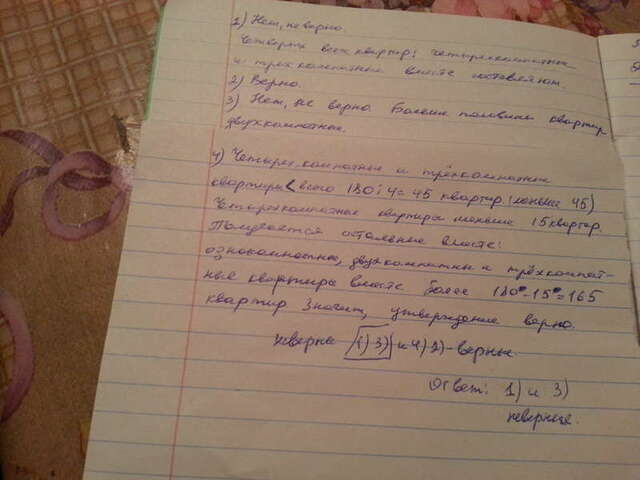 1) Нет, не верно.
Четверть всех квартир: четырехкомнатные
и трех комнатные вместе составляют.
2) Верно.
3) Нет, не верно. Больше половины квартир
двухкомнатные.
4) Четырех комнатные и трёхкомнатные
квартиры < всего 180:4=45 квартир (меньше 45)
Четырехкомнатные квартиры меньше 15 квартир.
остальные вместе:
однокомнатные, двухкомнатные и трёхкомнат-
ные квартиры вместе более 180°-15°=165
квартир Значит, утверждение верно.
неверны 1) 3) и 4) 2)-верны.
Ответ: 1) и 3)
неверные.